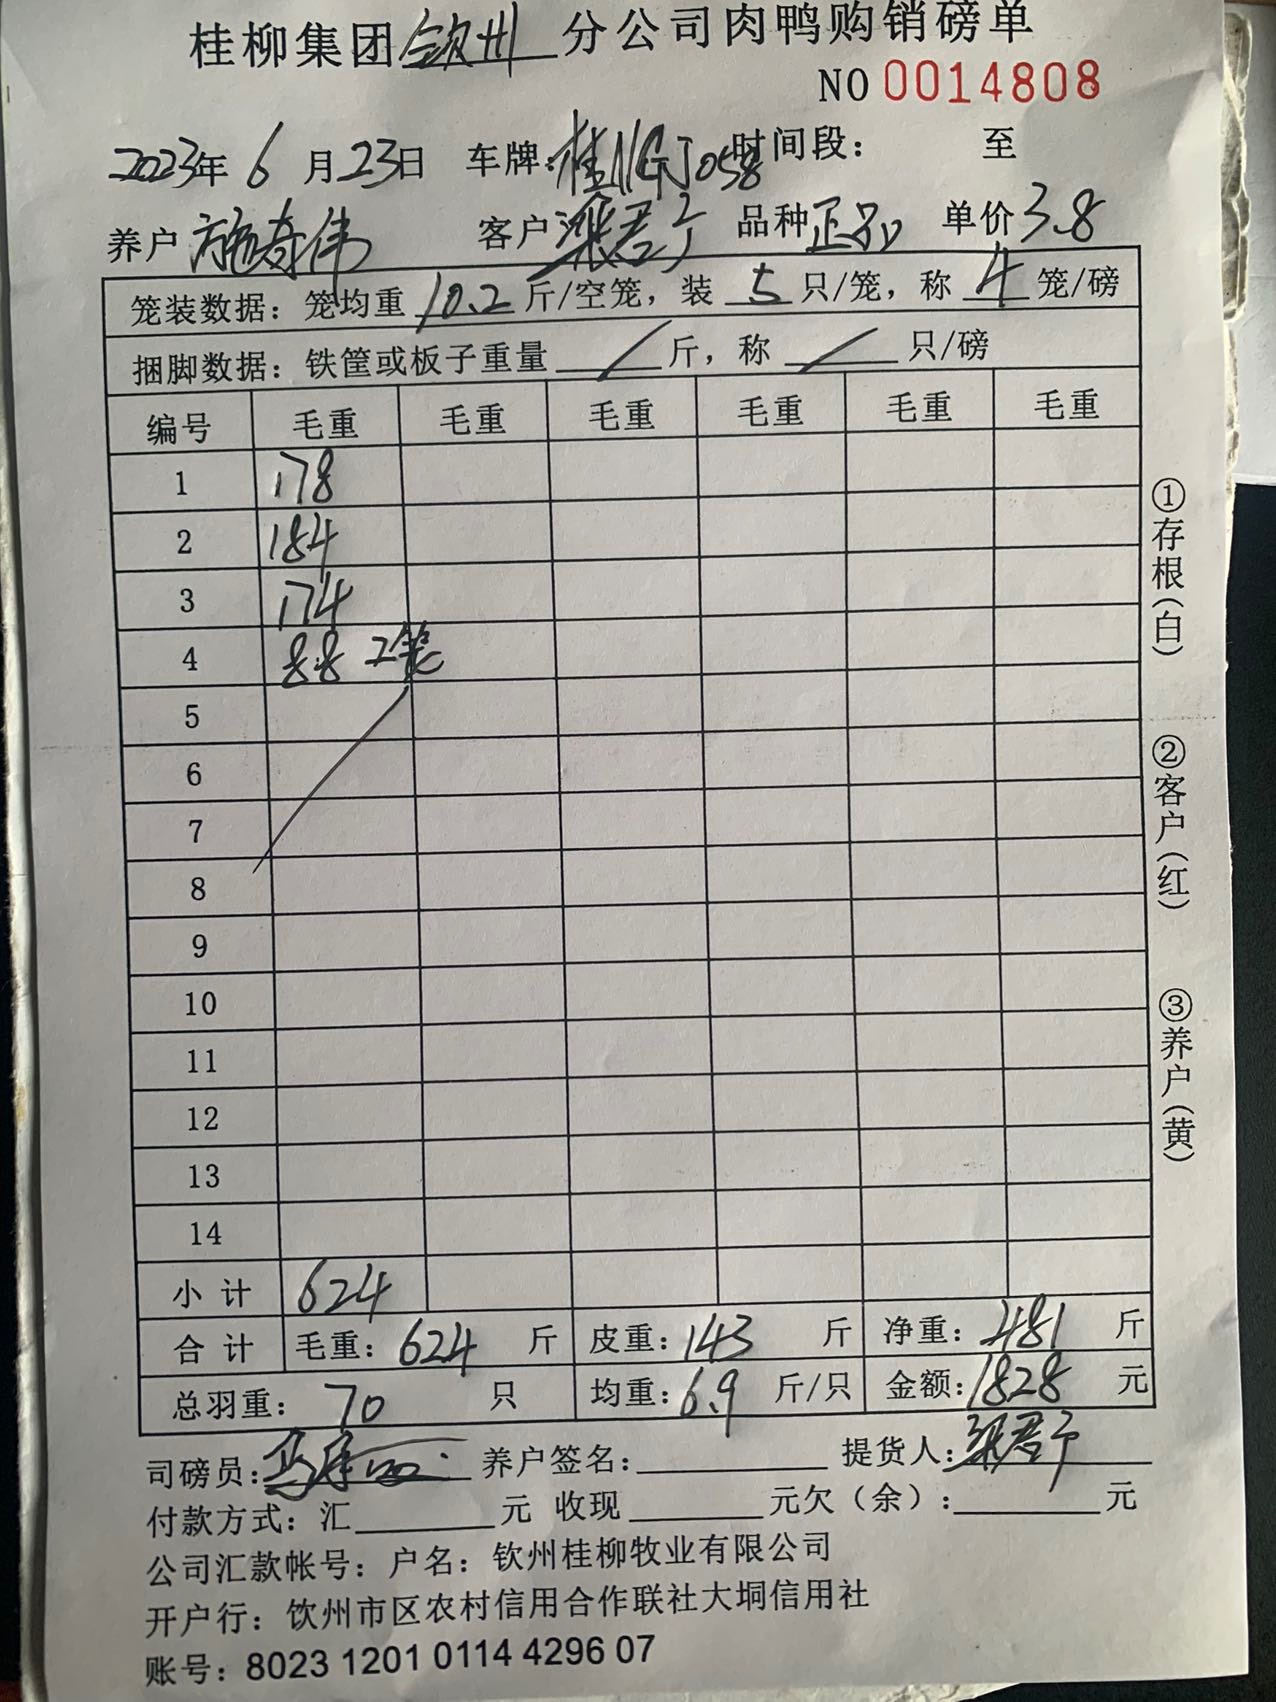 桂柳集团钦州分公司肉鸭购销磅单
NO 0014808
2023年6月23日 车牌:桂NGJ058 时间段: 至
养户 施奇伟 客户 梁君宁 品种 正品 单价 3.8
笼装数据:笼均重 10.2 斤/空笼,装 5 只/笼,称 4 笼/磅
捆脚数据:铁筐或板子重量 / 斤,称 / 只/磅
编号 毛重 毛重 毛重 毛重 毛重 毛重
1 178
2 184
3 174
4 88 2笼
5
6
7
8
9
10
11
12
13
14
小计 624
合计 毛重:624 斤 皮重:143 斤 净重:481 斤
总羽重:70 只 均重:6.9 斤/只 金额:1828 元
司磅员: 养户签名: 提货人:梁君宁
付款方式:汇 元 收现 元欠(余): 元
公司汇款帐号:户名:钦州桂柳牧业有限公司
开户行:饮州市区农村信用合作联社大垌信用社
账号:8023 1201 0114 4296 07
①存根(白)
②客户(红)
③养户(黄)